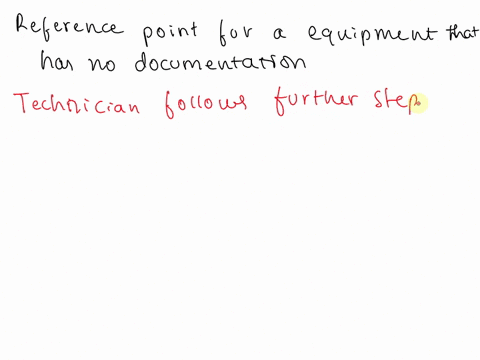 Reference point for a equipment that
has no documentation
Technician follows further step